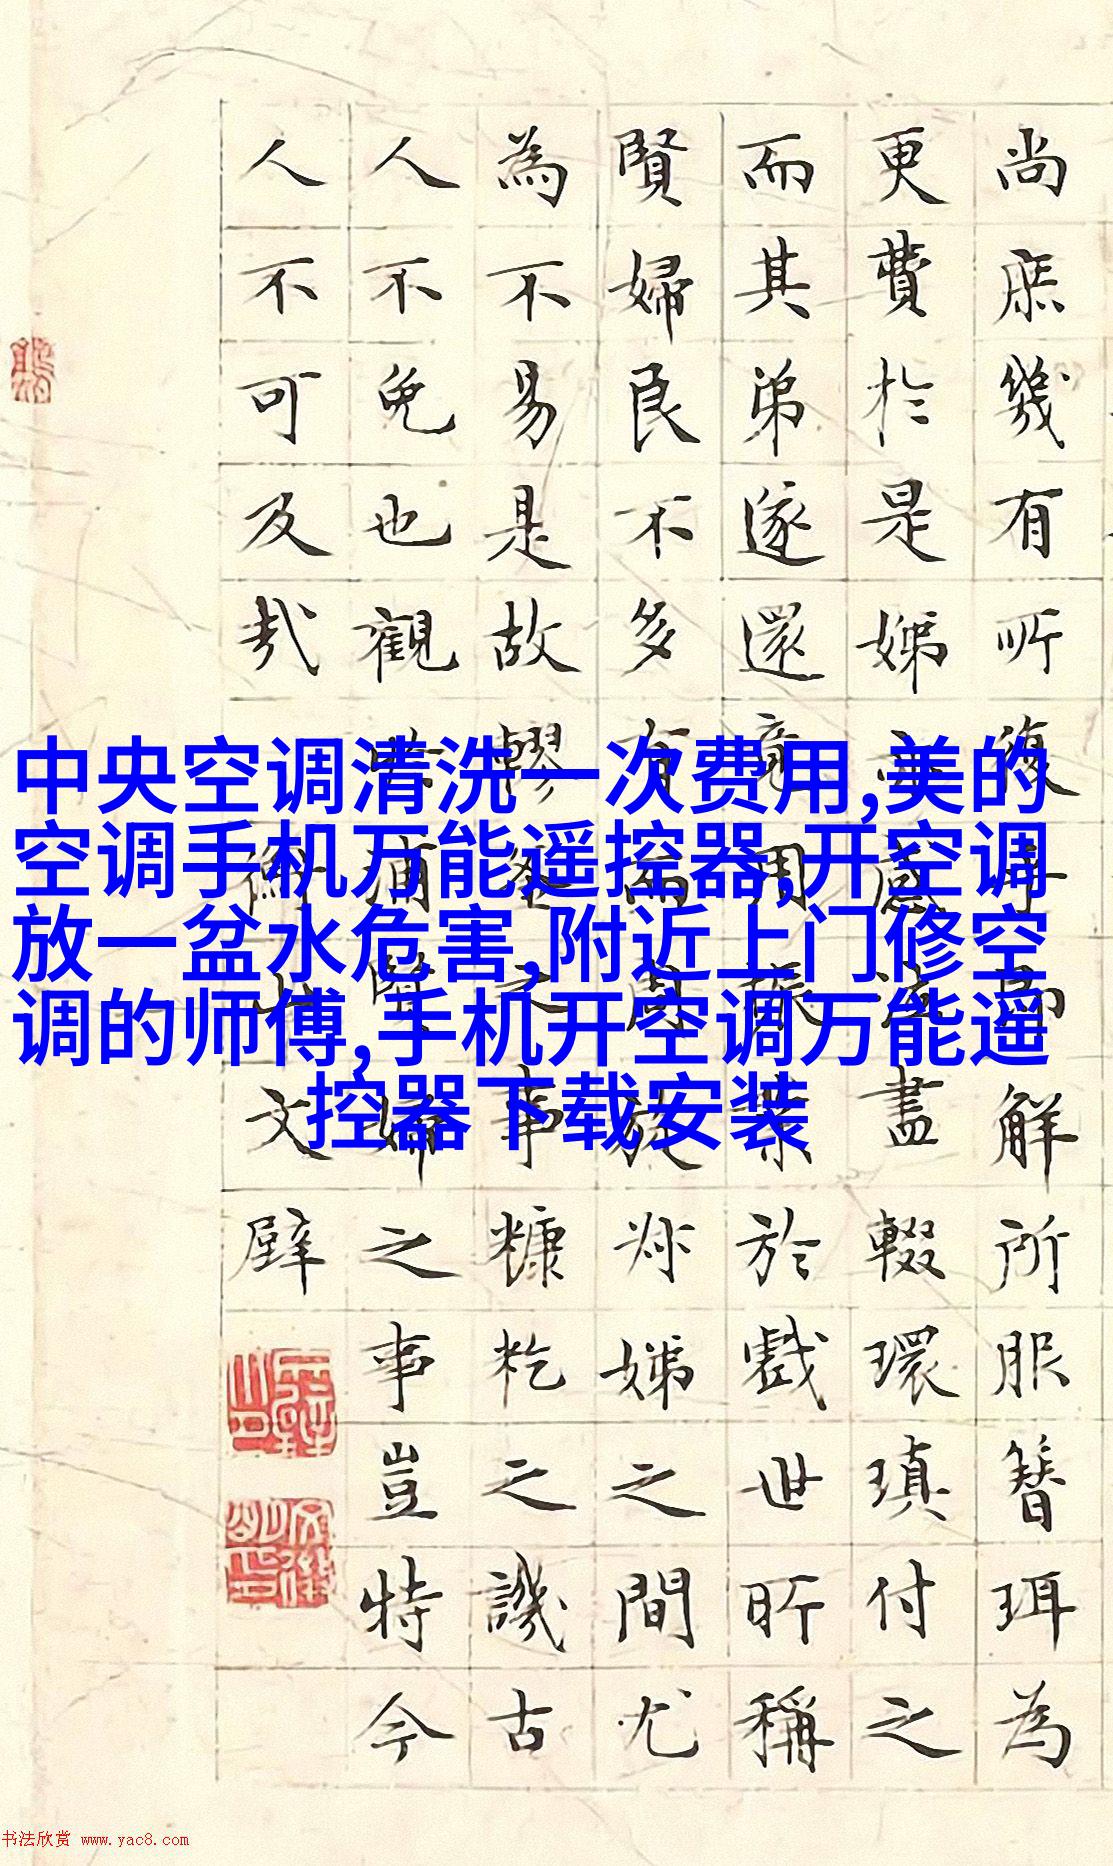 尚庶幾有所復解所服簪珥為
更費於是娣盡輟環瑱付之
而其弟遂還竟用振業於戲世所稱
賢婦良不多有而周旋姒娣之間尤
為不易是故轇之事糠籺之譏古
人不免也觀浦婦之事豈特今
人不可及哉
衡山文壁
中央空调清洗一次费用,美的
空调手机万能遥控器,开空调
放一盆水危害,附近上门修空
调的师傅,手机开空调万能遥
控器下载安装
书法欣赏 www.yac8.com